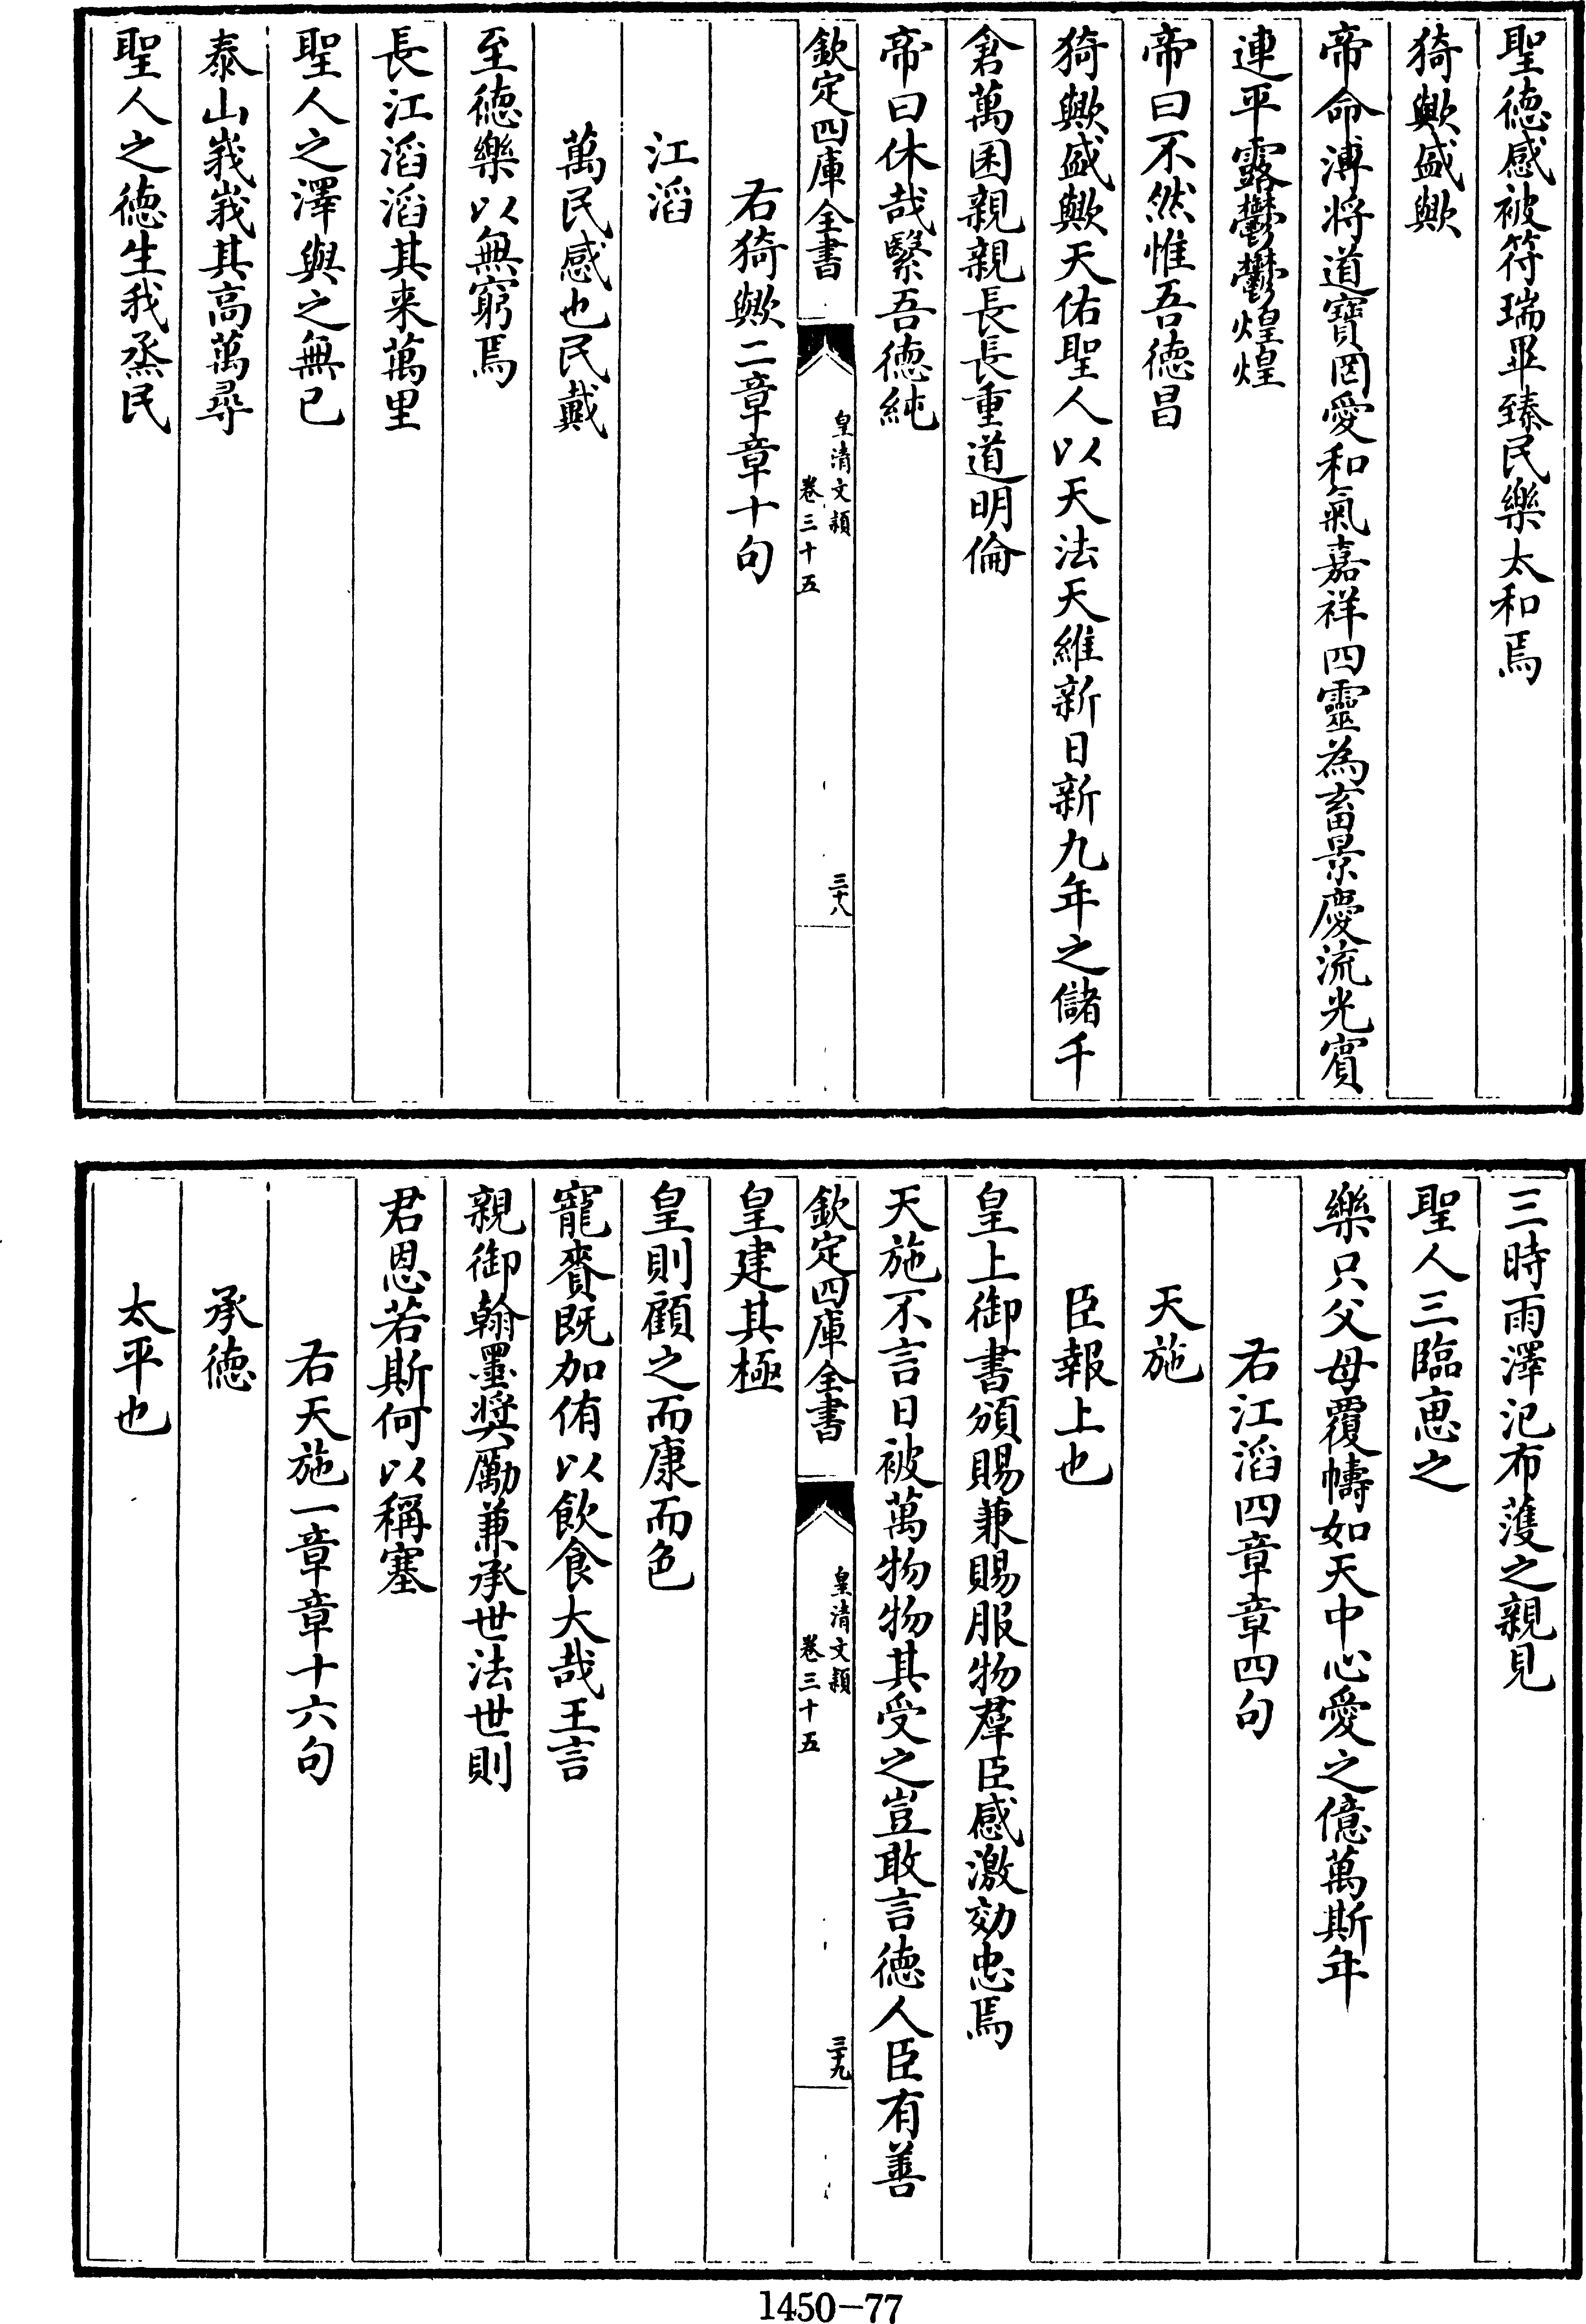 聖徳感被符瑞畢臻民樂太和焉
猗歟盛歟
帝命溥将道寶罔愛和氣嘉祥四靈為畜景慶流光賓
連平露鬱鬱煌煌
帝曰不然惟吾徳昌
猗歟盛歟天佑聖人以天法天維新日新九年之儲千
倉萬囷親親長長重道明倫
帝曰休哉繄吾徳純
欽定四庫全書
皇清文穎
卷三十五
三十八
右猗歟二章章十句
江滔
萬民感也民戴
至徳樂以無窮焉
長江滔滔其来萬里
聖人之澤與之無已
泰山峩峩其高萬尋
聖人之徳生我烝民
三時雨澤汜布濩之親見
聖人三臨恵之
樂只父母覆幬如天中心愛之億萬斯年
右江滔四章章四句
天施
臣報上也
皇上御書頒賜兼賜服物羣臣感激効忠焉
天施不言日被萬物物其受之豈敢言徳人臣有善
欽定四庫全書
皇清文穎
卷三十五
三十九
皇建其極
皇則顧之而康而色
寵賚既加侑以飲食大哉王言
親御翰墨奬厲兼承世法世則
君恩若斯何以稱塞
右天施一章章十六句
承徳
太平也
1450-77